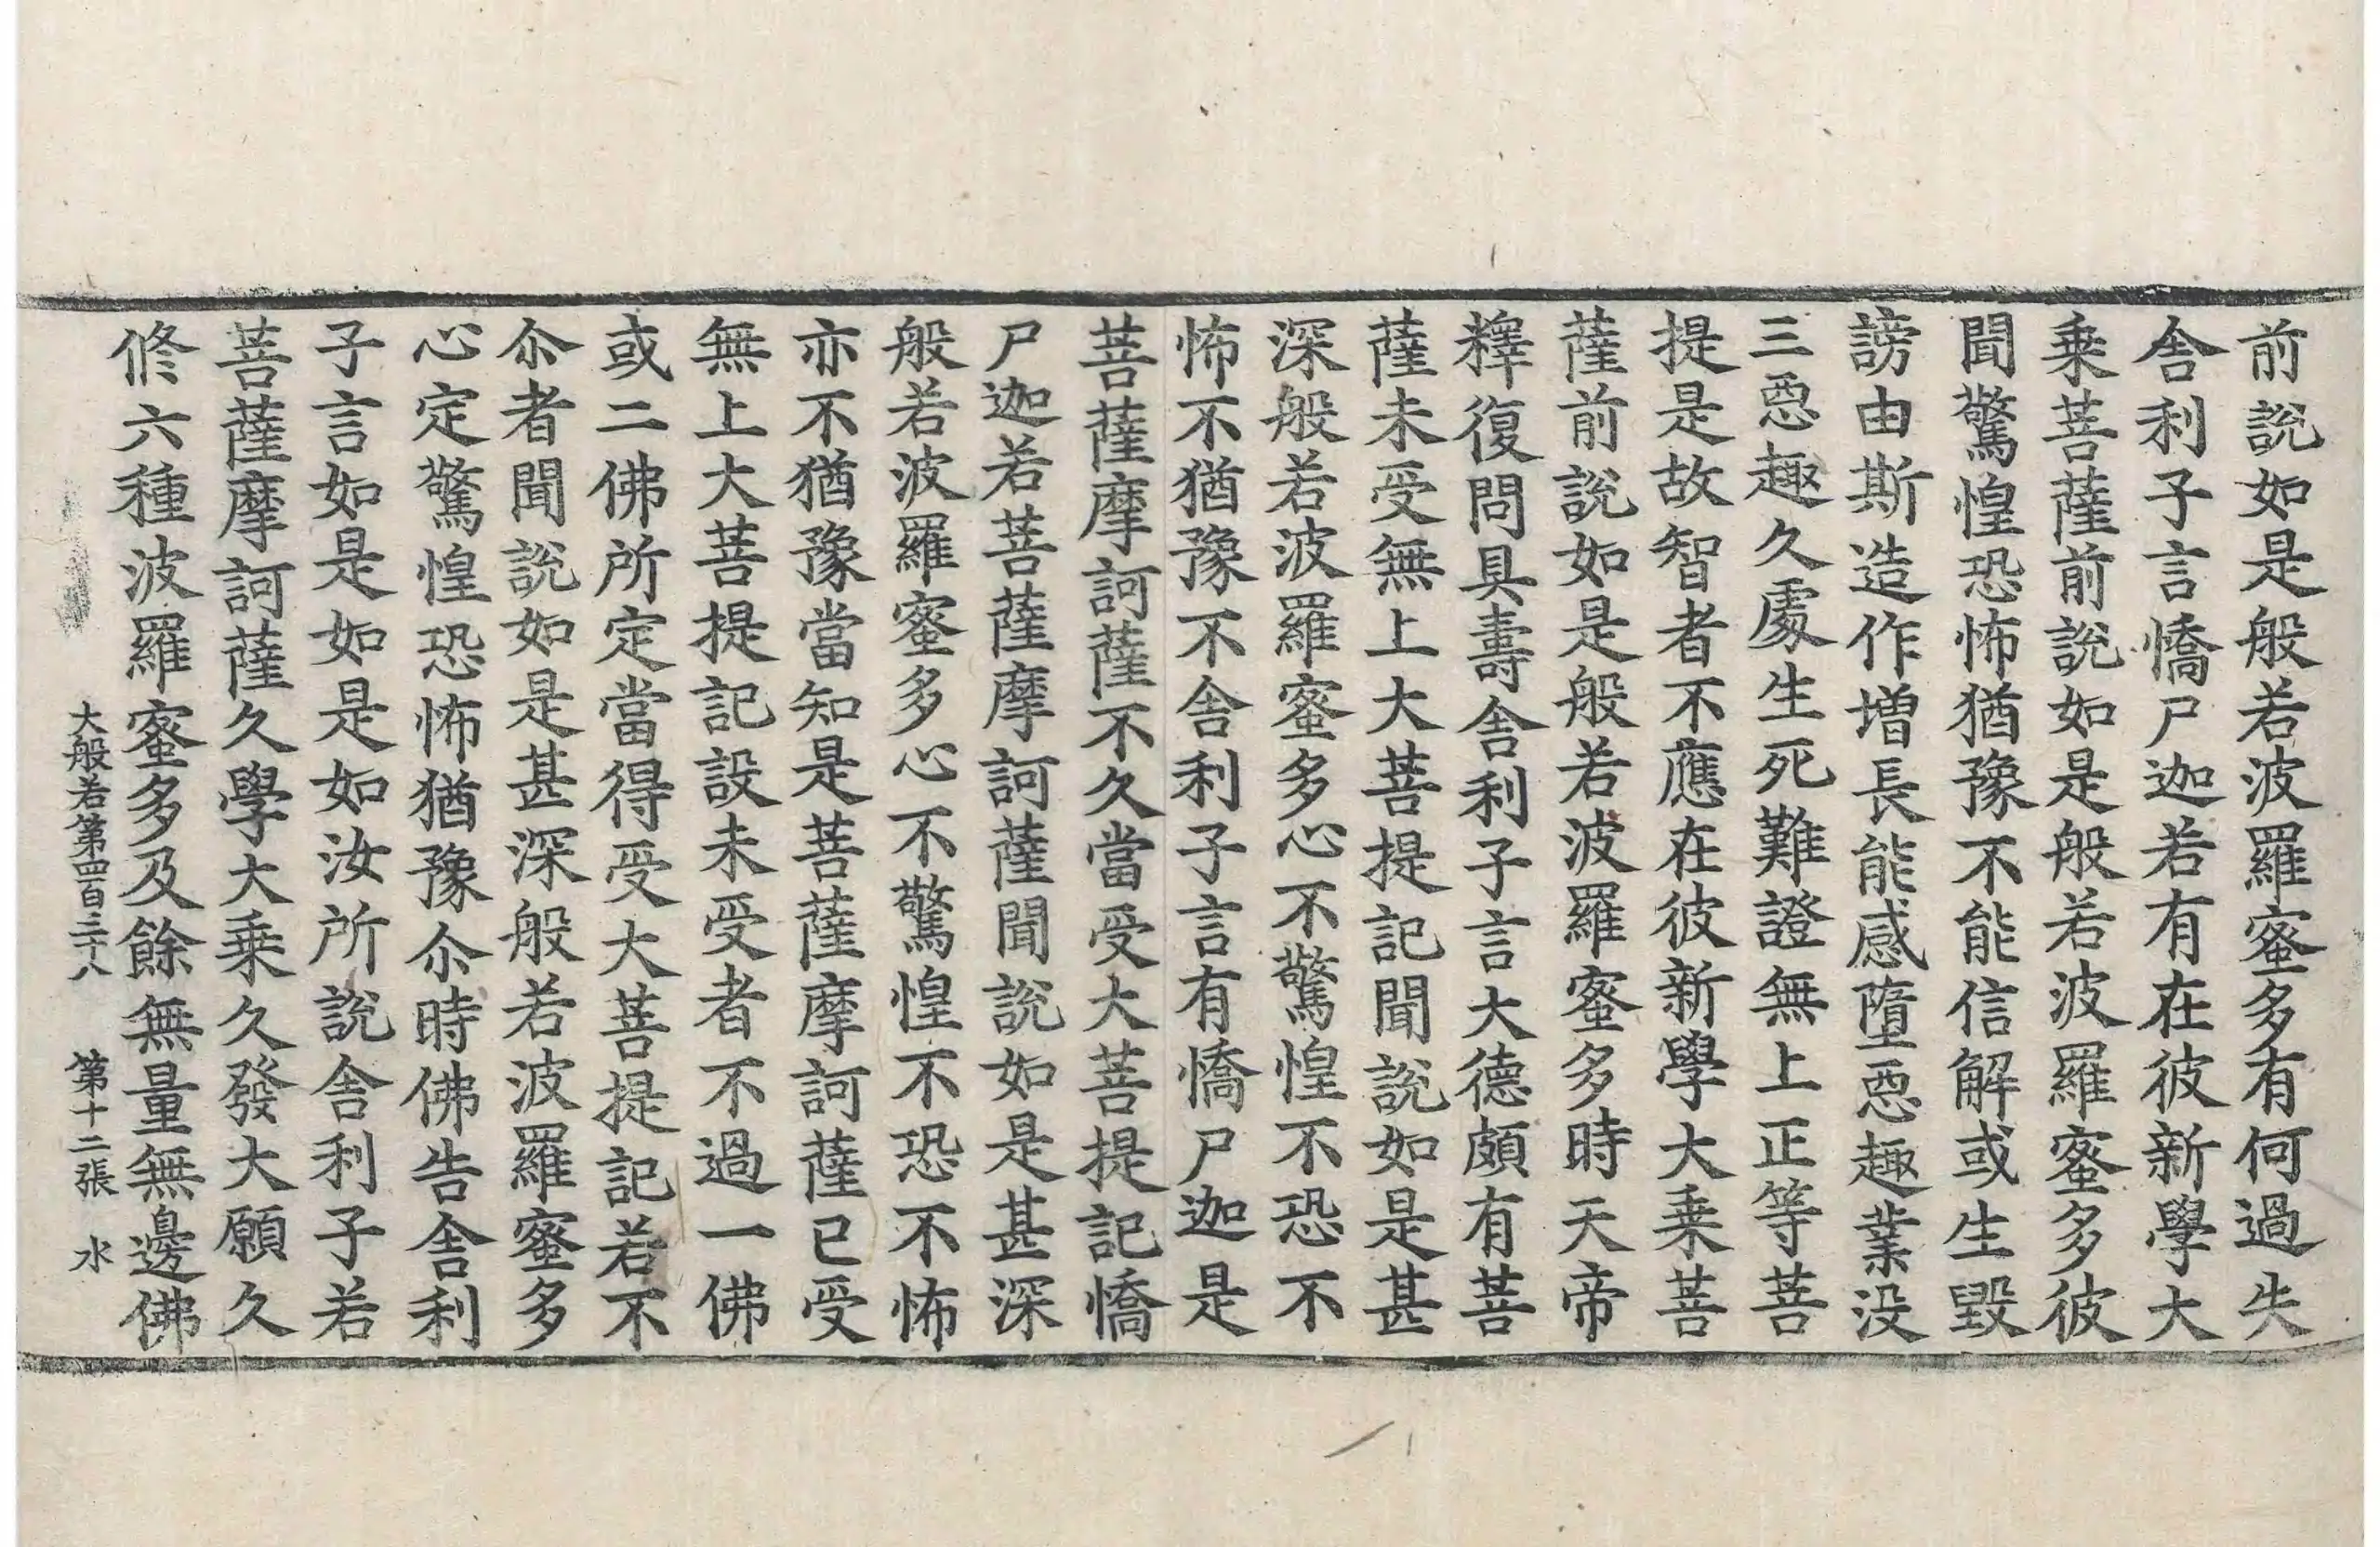 前說如是般若波羅蜜多有何過失
舎利子言憍尸迦若有在彼新學大
乗菩薩前說如是般若波羅蜜多彼
聞驚惶恐怖猶豫不能信解或生毀
謗由斯造作增長能感墮惡趣業没
三惡趣久處生死難證無上正等菩
提是故智者不應在彼新學大乗菩
薩前說如是般若波羅蜜多時天帝
釋復問具壽舎利子言大德頗有菩
薩未受無上大菩提記聞說如是甚
深般若波羅蜜多心不驚惶不恐不
怖不猶豫不舎利子言有憍尸迦是
菩薩摩訶薩不久當受大菩提記憍
尸迦若菩薩摩訶薩聞說如是甚深
般若波羅蜜多心不驚惶不恐不怖
亦不猶豫當知是菩薩摩訶薩已受
無上大菩提記設未受者不過一佛
或二佛所定當得受大菩提記若不
尒者聞說如是甚深般若波羅蜜多
心定驚惶恐怖猶豫尒時佛告舎利
子言如是如是如汝所說舎利子若
菩薩摩訶薩久學大乗久發大願久
修六種波羅蜜多及餘無量無邊佛
大般若第四百三十八 第十二張 水